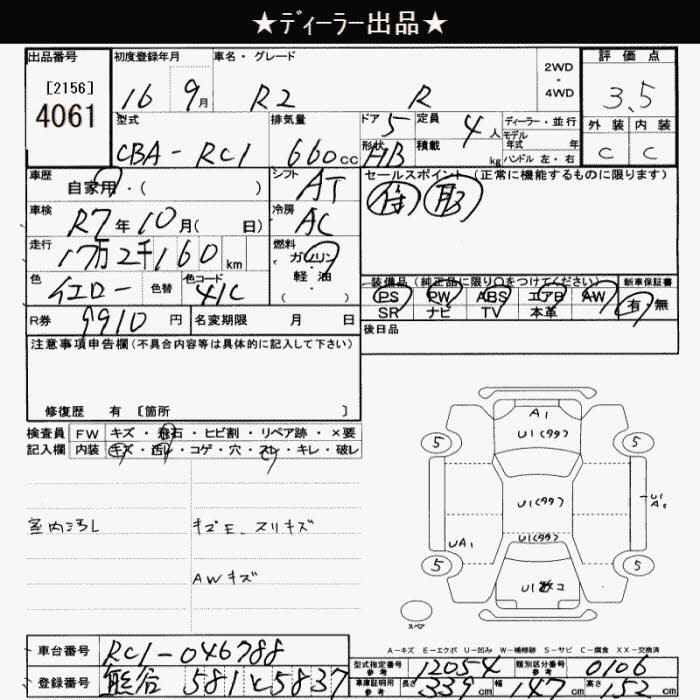 ★ディーラー出品★
出品番号 初度登録年月 車名・グレード 2WD・4WD 評価点
[2156]
4061
16 9月 R2 R 3.5
型式 排気量 ドア 定員 ディーラー・並行 外装 内装
5 4人 モデル年式 年
CBA-RC1 660cc 形状 HB 積載 kg ハンドル 左・右 C C
車歴 自家用・( ) シフト AT セールスポイント (正常に機能するものに限ります)
車検 R7年10月( 日) 冷房 AC
走行 17万2千160km 燃料 ガソリン・軽油 ( )
色 イエロー 色替 色コード 41C 装備品(純正品に限り○をつけてください) 新車保証書
PS PW ABS エアB AW 有・無
SR ナビ TV 本革
R券 9910円 名変期限 月 日 後日品
注意事項申告欄(不具合内容等は具体的に記入して下さい)
修復歴 有 [箇所 ]
検査員 FW キズ・飛石・ヒビ割・リペア跡・×要
記入欄 内装 キズ・汚レ・コゲ・穴・スレ・キレ・破レ
室内汚レ キズE.スリキズ
AWキズ
A1
U1(タタ)
5 5
U1(タタ)
U1
UA1 U1(タタ)
5 5
スペア
A-キズ E-エクボ U-凹み W-補修跡 S-サビ C-腐食 XX-交換済
車台番号 RC1-046788 型式指定番号 参考 12054 類別区分番号 参考 0106
登録番号 熊谷 581 と 5837 車庫証明用 参考 長さ 339cm 幅 147cm 高さ 152cm